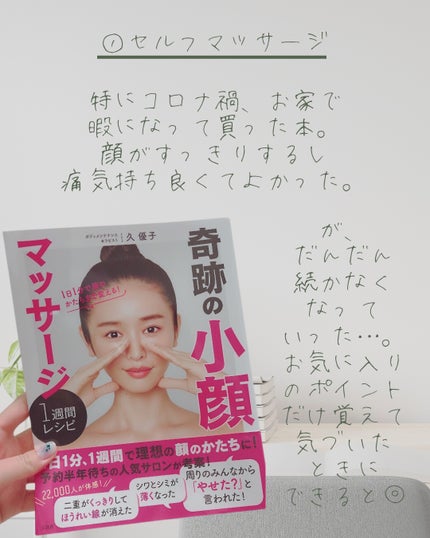 ①セルフマッサージ
特にコロナ禍、お家で
暇になって買った本。
顔がすっきりするし
痛気持ち良くてよかった。
が、
だんだん
続かなく
なって
いった…。
お気に入り
のポイント
だけ覚えて
気づいた
ときに
できると◎
久 優子
奇跡の小顔
マッサージ
1週間
レシピ
1日1分、1週間で理想の顔のかたちに!
予約半年待ちの人気サロンが考案!
22,000人が体感!
二重がくっきりして
ほうれい線が消えた
シワとシミが
薄くなった
周りのみんなから
「やせた?」と
言われた!